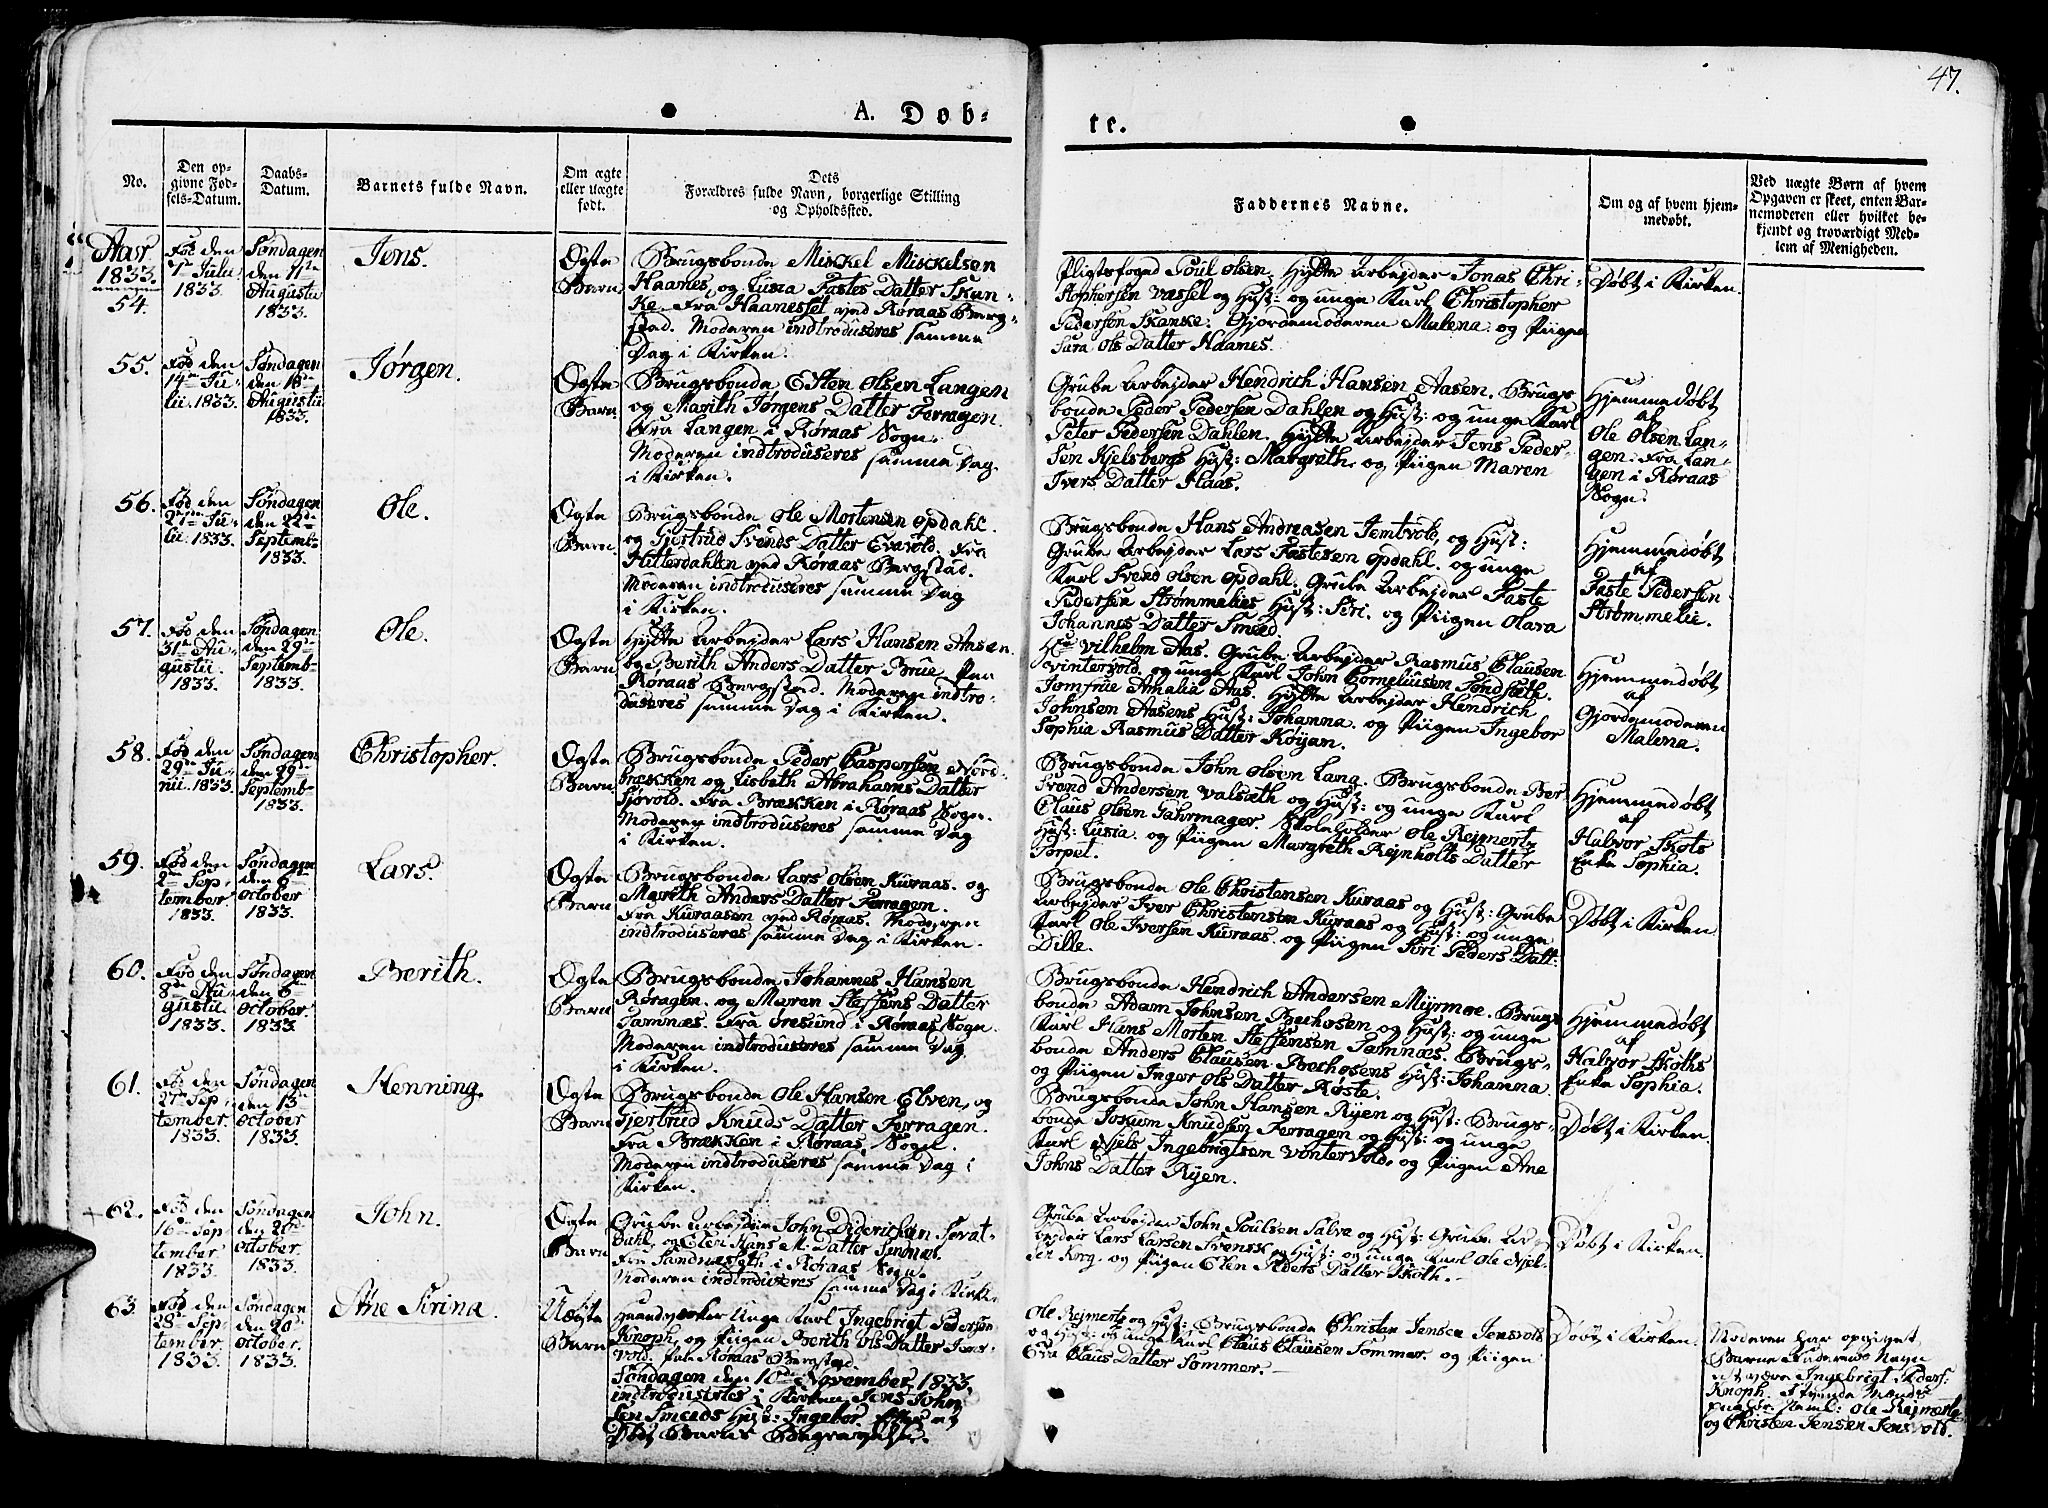 47.
A. Døb-
te.
No.
Den op-
givne Fød-
sels-Datum.
Daabs-
Datum.
Barnets fulde Navn.
Om ægte
eller uægte
født.
Dets
Forældres fulde Navn, borgerlige Stilling
og Opholdssted.
Faddernes Navne.
Om og af hvem hjem-
medøbt.
Ved uægte Børn af hvem
Opgaven er skeet, enten Bar-
nemoderen eller hvilket be-
kjendt og troværdigt Med-
lem af Menigheden.
Aar
1833.
54.
Fød den
7de Julii
1833.
Søndagen
den 11te
Augustii
1833.
Jens.
Ægte
Barn
Brugsbonde Mikkel Mikkelsen
Haanes, og Lusia Fastes Datter Skan-
ke. Fra Haanesset ved Røraas Berg-
stad. Moderen indtroduseres samme
Dag i Kirken.
Pligtsfoged Poul Olsen. Hytte Arbejder Jonas Chri-
stophersen Vassel og Hust: og unge Karl Christopher
Pedersen Skanke. Gjordemoderen Malena. og Piigen
Sara Ols Datter Haanes.
Døbt i Kirken.
55.
Fød den
14de Ju-
lii. 1833.
Søndagen
den 18de
Augustii
1833.
Jørgen.
Ægte
Barn
Brugsbonde Esten Olsen Langen
og Marith Jørgens Datter Ferragen.
Fra Langen i Røraas Sogn.
Moderen indtroduseres samme Dag
i Kirken.
Grube Arbejder Hendrich Hansen Aasen. Brugs
bonde Peder Pedersen Dahlen og Hust: og unge Karl
Peter Pedersen Dahlen. Hytte Arbejder Jens Peder-
sen Kjelsbergs Hust: Margreth. og Piigen Maren
Ivers Datter Haas.
Hjemmedøbt
af
Ole Olsen Lan-
gen. Fra Lan-
gen i Røraas
Sogn.
56.
Fød den
27de Ju-
lii. 1833.
Søndagen
den 22de
Septemb-
1833.
Ole.
Ægte
Barn
Brugsbonde Ole Mortensen Opdahl.
og Gjertrud Svens Datter Evavold. Fra
Hitterdahlen ved Røraas Bergstad.
Moderen indtroduseres samme Dag
i Kirken.
Brugsbonde Hans Andreasen Jemtvold, og Hust:
Grube Arbejder Lars Fastesen Opdahl. og unge
Karl Svend Olsen Opdahl. Grube Arbejder Faste
Pedersen Strømmelies Hust: Siri. og Piigen Olara
Johannes Datter Smed.
Hjemmedøbt
af
Faste Pedersen
Strømmelie.
57.
Fød den
31te Au-
gustii.
1833.
Søndagen
den 29de
Septemb-
1833.
Ole.
Ægte
Barn
Hytte Arbejder Lars Hansen Aasen.
og Berith Anders Datter Brue. Paa
Røraas Bergstad. Moderen indtro-
duseres samme Dag i Kirken.
Vilhelm Aas. Grube Arbejder Rasmus Clausen
Vintervold. og unge Karl John Corneliusen Sundsæth.
Jomfrue Amalia Aas. Hytte Arbejder Hendrich
Johnsen Aasens Hust: Johanna. og Piigen Ingebor
Sophia Rasmus Datter Køyan.
Hjemmedøbt
af
Gjordemoderen
Malena.
58.
Fød den
29de Ju-
nii. 1833.
Søndagen
den 29de
Septemb-
1833.
Christopher.
Ægte
Barn
Brugsbonde Peder Caspersen Nord-
brækken og Lisbeth Abrahams Datter
Sjovold. Fra Brækken i Røraas Sogn.
Moderen indtroduseres samme Dag
i Kirken.
Brugsbonde John Olsen Lana. Brugsbonde Ber
Svend Andersen Valsæth og Hust: og unge Karl
Claus Olsen Fahrmager. Skoleholder Ole Rejmertz
Hust: Lusia. og Piigen Margreth Rejnholts Datter
Torpet.
Hjemmedøbt
af
Halvor Skots
Enke Sophia.
59.
Fød den
2den Sep-
tember
1833.
Søndagen
den 6te
October
1833.
Lars.
Ægte
Barn
Brugsbonde Lars Olsen Kuraas. og
Marith Anders Datter Ferragen.
Fra Kuraasen ved Røraas. Moderen
indtroduseres samme Dag i Kirken.
Brugsbonde Ole Christensen Kuraas og Hust: Grube
Arbejder Iver Christensen Kuraas og Hust: og unge
Karl Ole Iversen Kuraas. og Piigen Siri Peders Datt:
Dille.
Døbt i Kirken
60.
Fød den
8de Au-
gustii
1833.
Søndagen
den 6te
October.
1833
Berith.
Ægte
Barn
Brugsbonde Johannes Hansen
Røragen. og Maren Steffens Datter
Tamnæs. Fra Øresund i Røraas Sogn.
Moderen indtroduseres samme Dag
i Kirken.
Brugsbonde Hendrich Andersen Myrmoe. Brugs
bonde Adam Johnsen Bechosen og Hust: og unge
Karl Hans Morten Steffensen Tamnæs. Brugs-
bonde Anders Clausen Bechosens Hust: Johanna
og Piigen Inger Ols Datter Røste.
Hjemmedøbt
af
Halvor Skoths
Enke Sophia.
61.
Fød den
27de Sep-
tember.
1833.
Søndagen
den 13de
October
1833.
Henning.
Ægte
Barn
Brugsbonde Ole Hansen Elven, og
Gjertrud Knuds Datter Ferragen.
Fra Brækken i Røraas Sogn.
Moderen indtroduseres samme Dag i
Kirken.
Brugsbonde John Hansen Ryen og Hust: Brugs-
bonde Jokum Knudsen Ferragen og Hust: og unge
Karl Niels Ingebrigtsen Vintervold. og Piigen Ane
Johns Datter Ryen.
Døbt i Kirken.
62.
Fød den
16de Sep-
tember
1833.
Søndagen
den 20de
October.
1833.
John.
Ægte
Barn
Grube Arbejder John Diderichsen Sevat-
Dahl. og Elen Hans M. Datter Sundnæs.
Fra Sandnæsseth. i Røraas Sogn.
Moderen indtroduseres samme Dag i Kirke.
Grube Arbejder John Poulsen Salve og Hust: Grube Ar-
bejder Lars Larsen Svensk og Hust: og unge Karl Ole Njel-
sen Korg. og Piigen Elen Peders Datter Skoth.
Døbt i Kirken.
63.
Fød den
28de Sep-
tember
1833.
Søndagen
den 20de
October.
1833.
Ane Sirina.
Uægte
Barn
Haandverker Unge Karl Ingebrigt Pedersen
Knoph, og Piigen Berith Ols Datter Jens-
vold. Fra Røraas Bergstad.
Søndagen den 10de November 1833.
indtroduseres i Kirken Jens John-
sen Smeds Hust: Ingebor. Efter et
Død Barns Begravelse.
Ole Rejmertz og Hust: Brugsbonde Christen Jensen Jensvold
og Hust: og unge Karl Claus Clausen Sommer. og Piigen
Eva Claus Datter Sommer.
Døbt i Kirken.
Moderen har opgivet
Barne Faderens Navn
at være Ingebrigt Peders:
Knoph.
Ole Rejmertz
og Christen Jensen Jensvold.